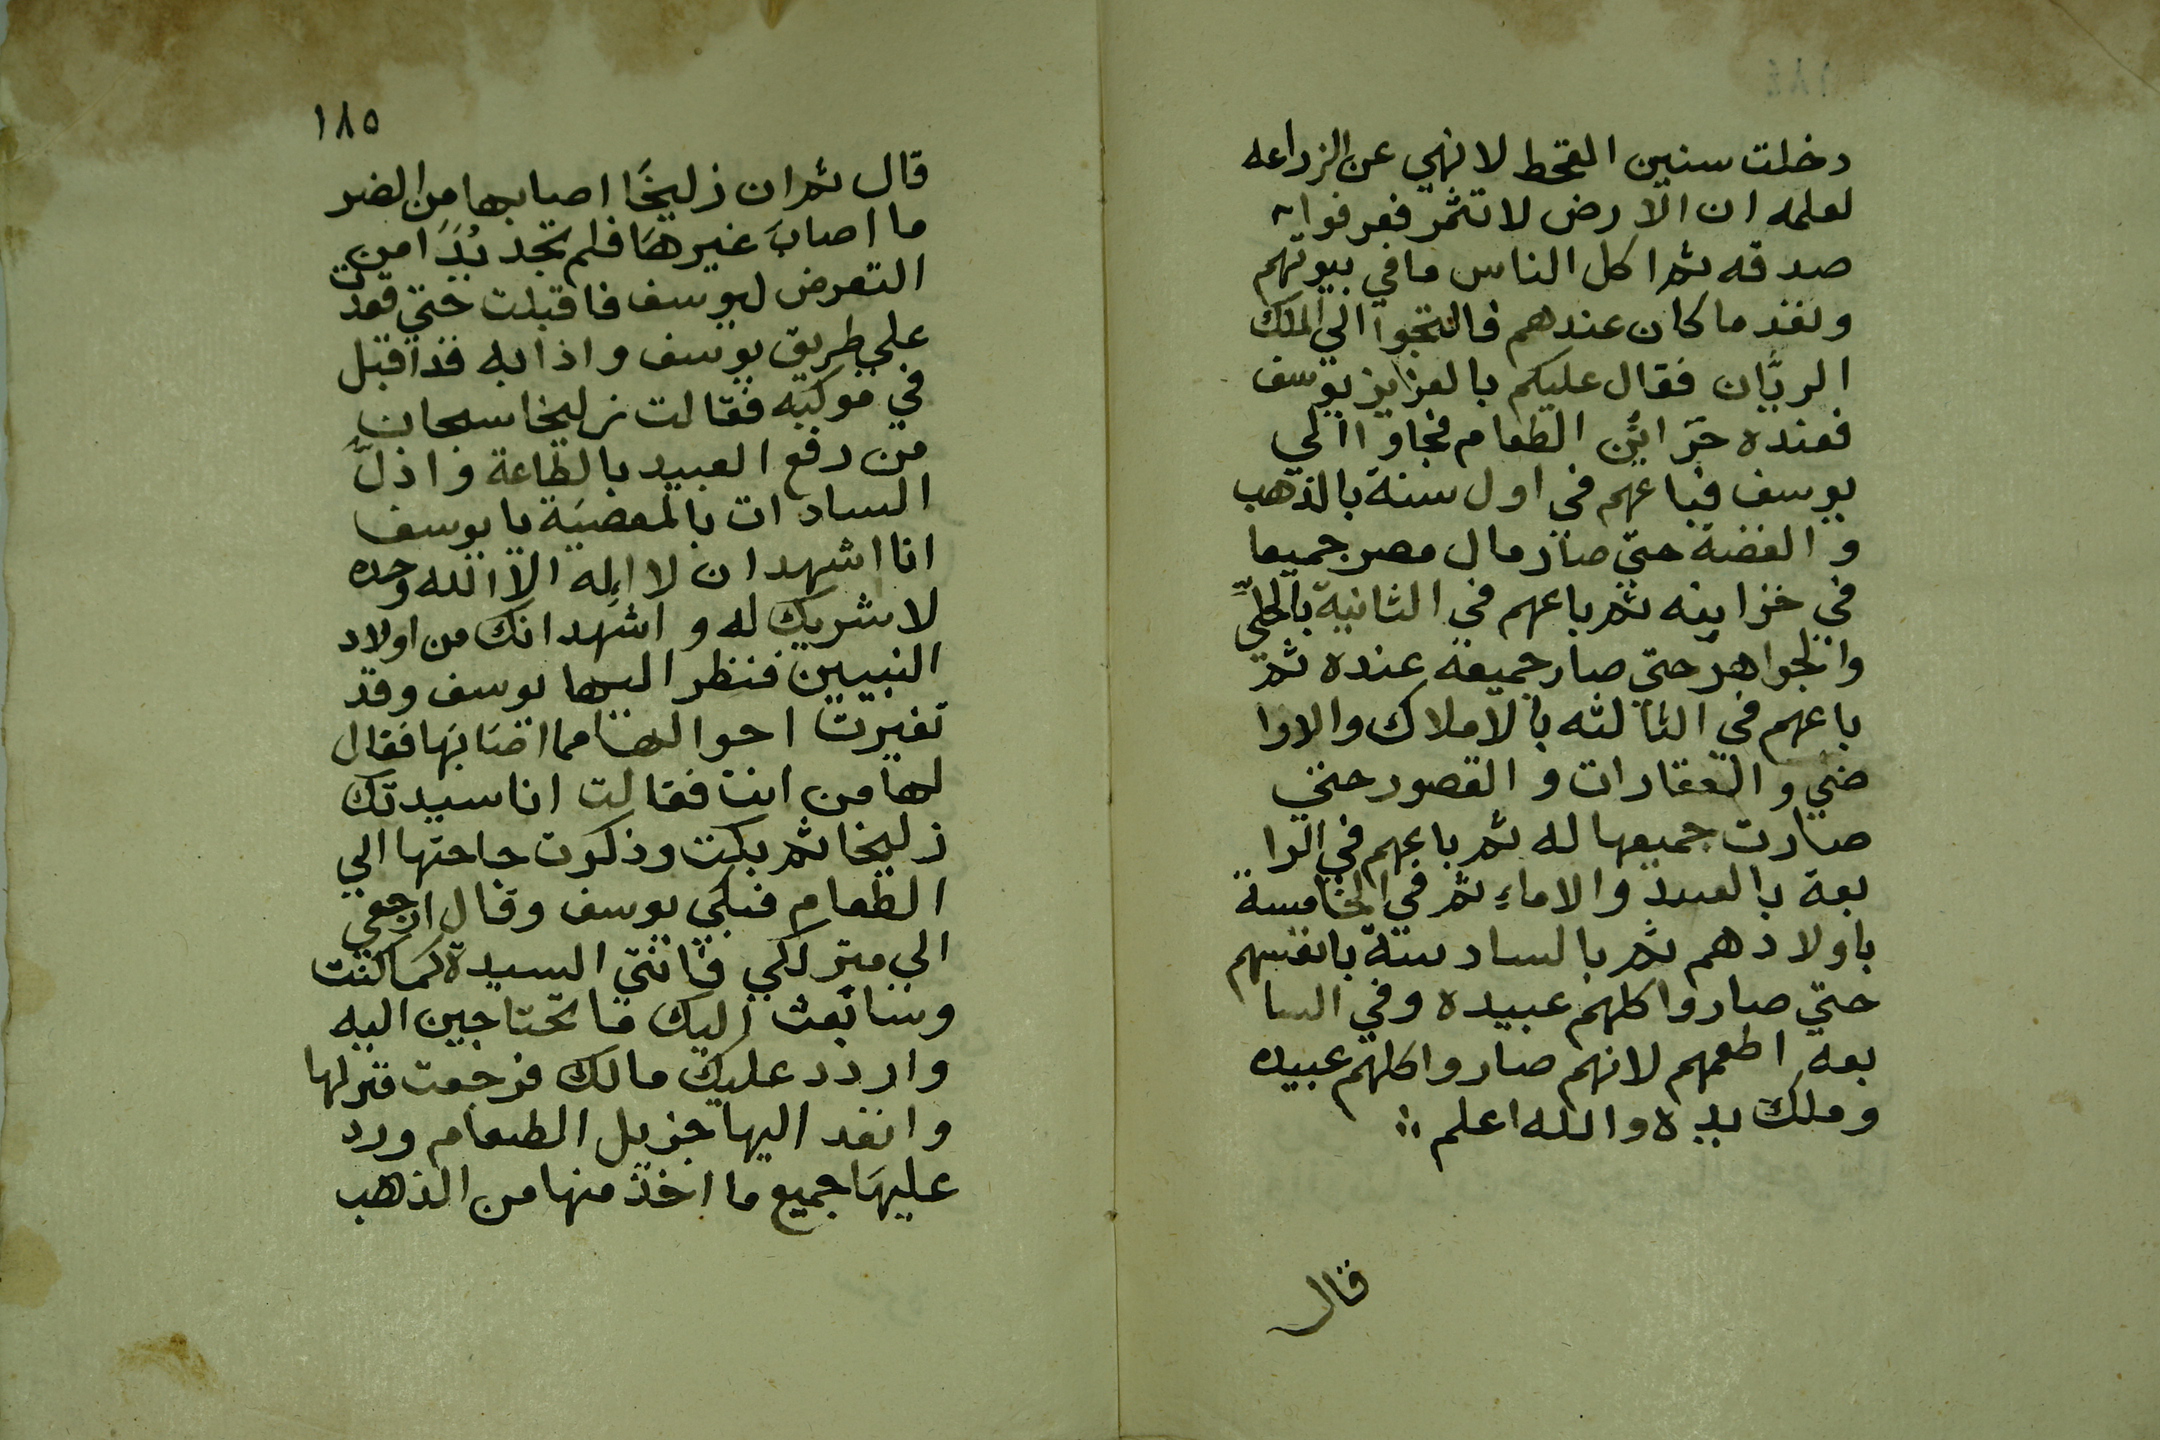 دخلت سنين القحط لانهي عن الزراعه
لعلمه ان الارض لا تثمر فعرفوا
صدقه ثم اكل الناس ما في بيوتهم
ونفد ما كان عندهم فالتجوا الي الملك
الريَّان فقال عليكم بالعزيز يوسف
فعنده خزائن الطعام فجاوا الي
يوسف فباعهم في اول سنة بالذهب
و الفضة حتي صار مال مصر جميعا
في خزاينه ثم باعهم في الثانية بالحليّ
والجواهر حتي صار جميعه عنده ثم
باعهم في الثالثه بالاملاك والارا
ضي و العقارات و القصور حتي
صارت جميعها له ثم باعهم في الرا
بعة بالعبيد والاماء ثم في الخامسة
باولادهم ثم بالسادسة بانفسهم
حتي صاروا كلهم عبيده وفي السا
بعه اطعمهم لانهم صاروا كلهم عبيده
وملك يده والله اعلم
قال
١٨٥
قال ثم ان زليخَا اصابها من الضر
ما اصابَ غيرهَا فلم تجد بُدََّا من
التعرض ليوسف فاقبلت حتي قعدت
علي طريق يوسف واذا به قد اقبل
في موكبه فقالت زليخا سبحان
من رفع العبيد بالطاعة واذلَّ
السادات بالمعصيَة يا يوسف
انا اشهد ان لا اله الا الله وحده
لا شريك له و اشهد انك من اولاد
النبيين فنظر اليها يوسف وقد
تغيرت احوالها مما اصَابَها فقال
لها من انت فقالت انا سيدتك
زليخا ثم بكت وذكرت حاجتها الي
الطعام فبكي يوسف وقال ارجعي
الي منزلكي فانتي السيدة كما كنت
وسابعث اليك ما تحتاجين اليه
واردد عليك مالك فرجعت منزلها
وانفد اليها جزيل الطعام ورد
عليهَا جميع ما اخذ منها من الذهب